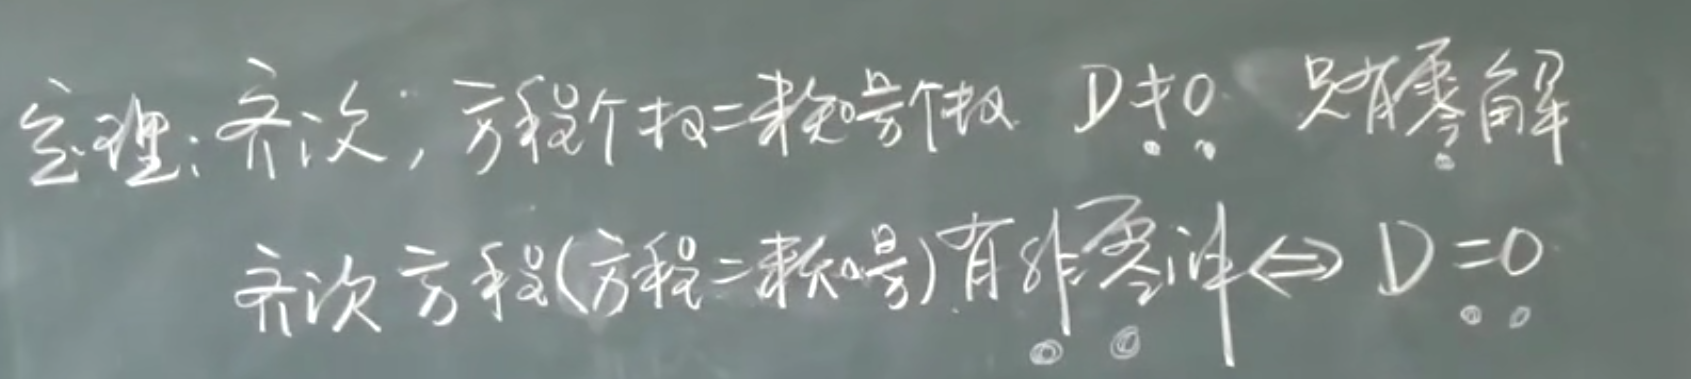 定理:齐次,方程个数=未知量个数 D≠0 只有零解
齐次方程(方程=未知量)有非零解⇔D=0